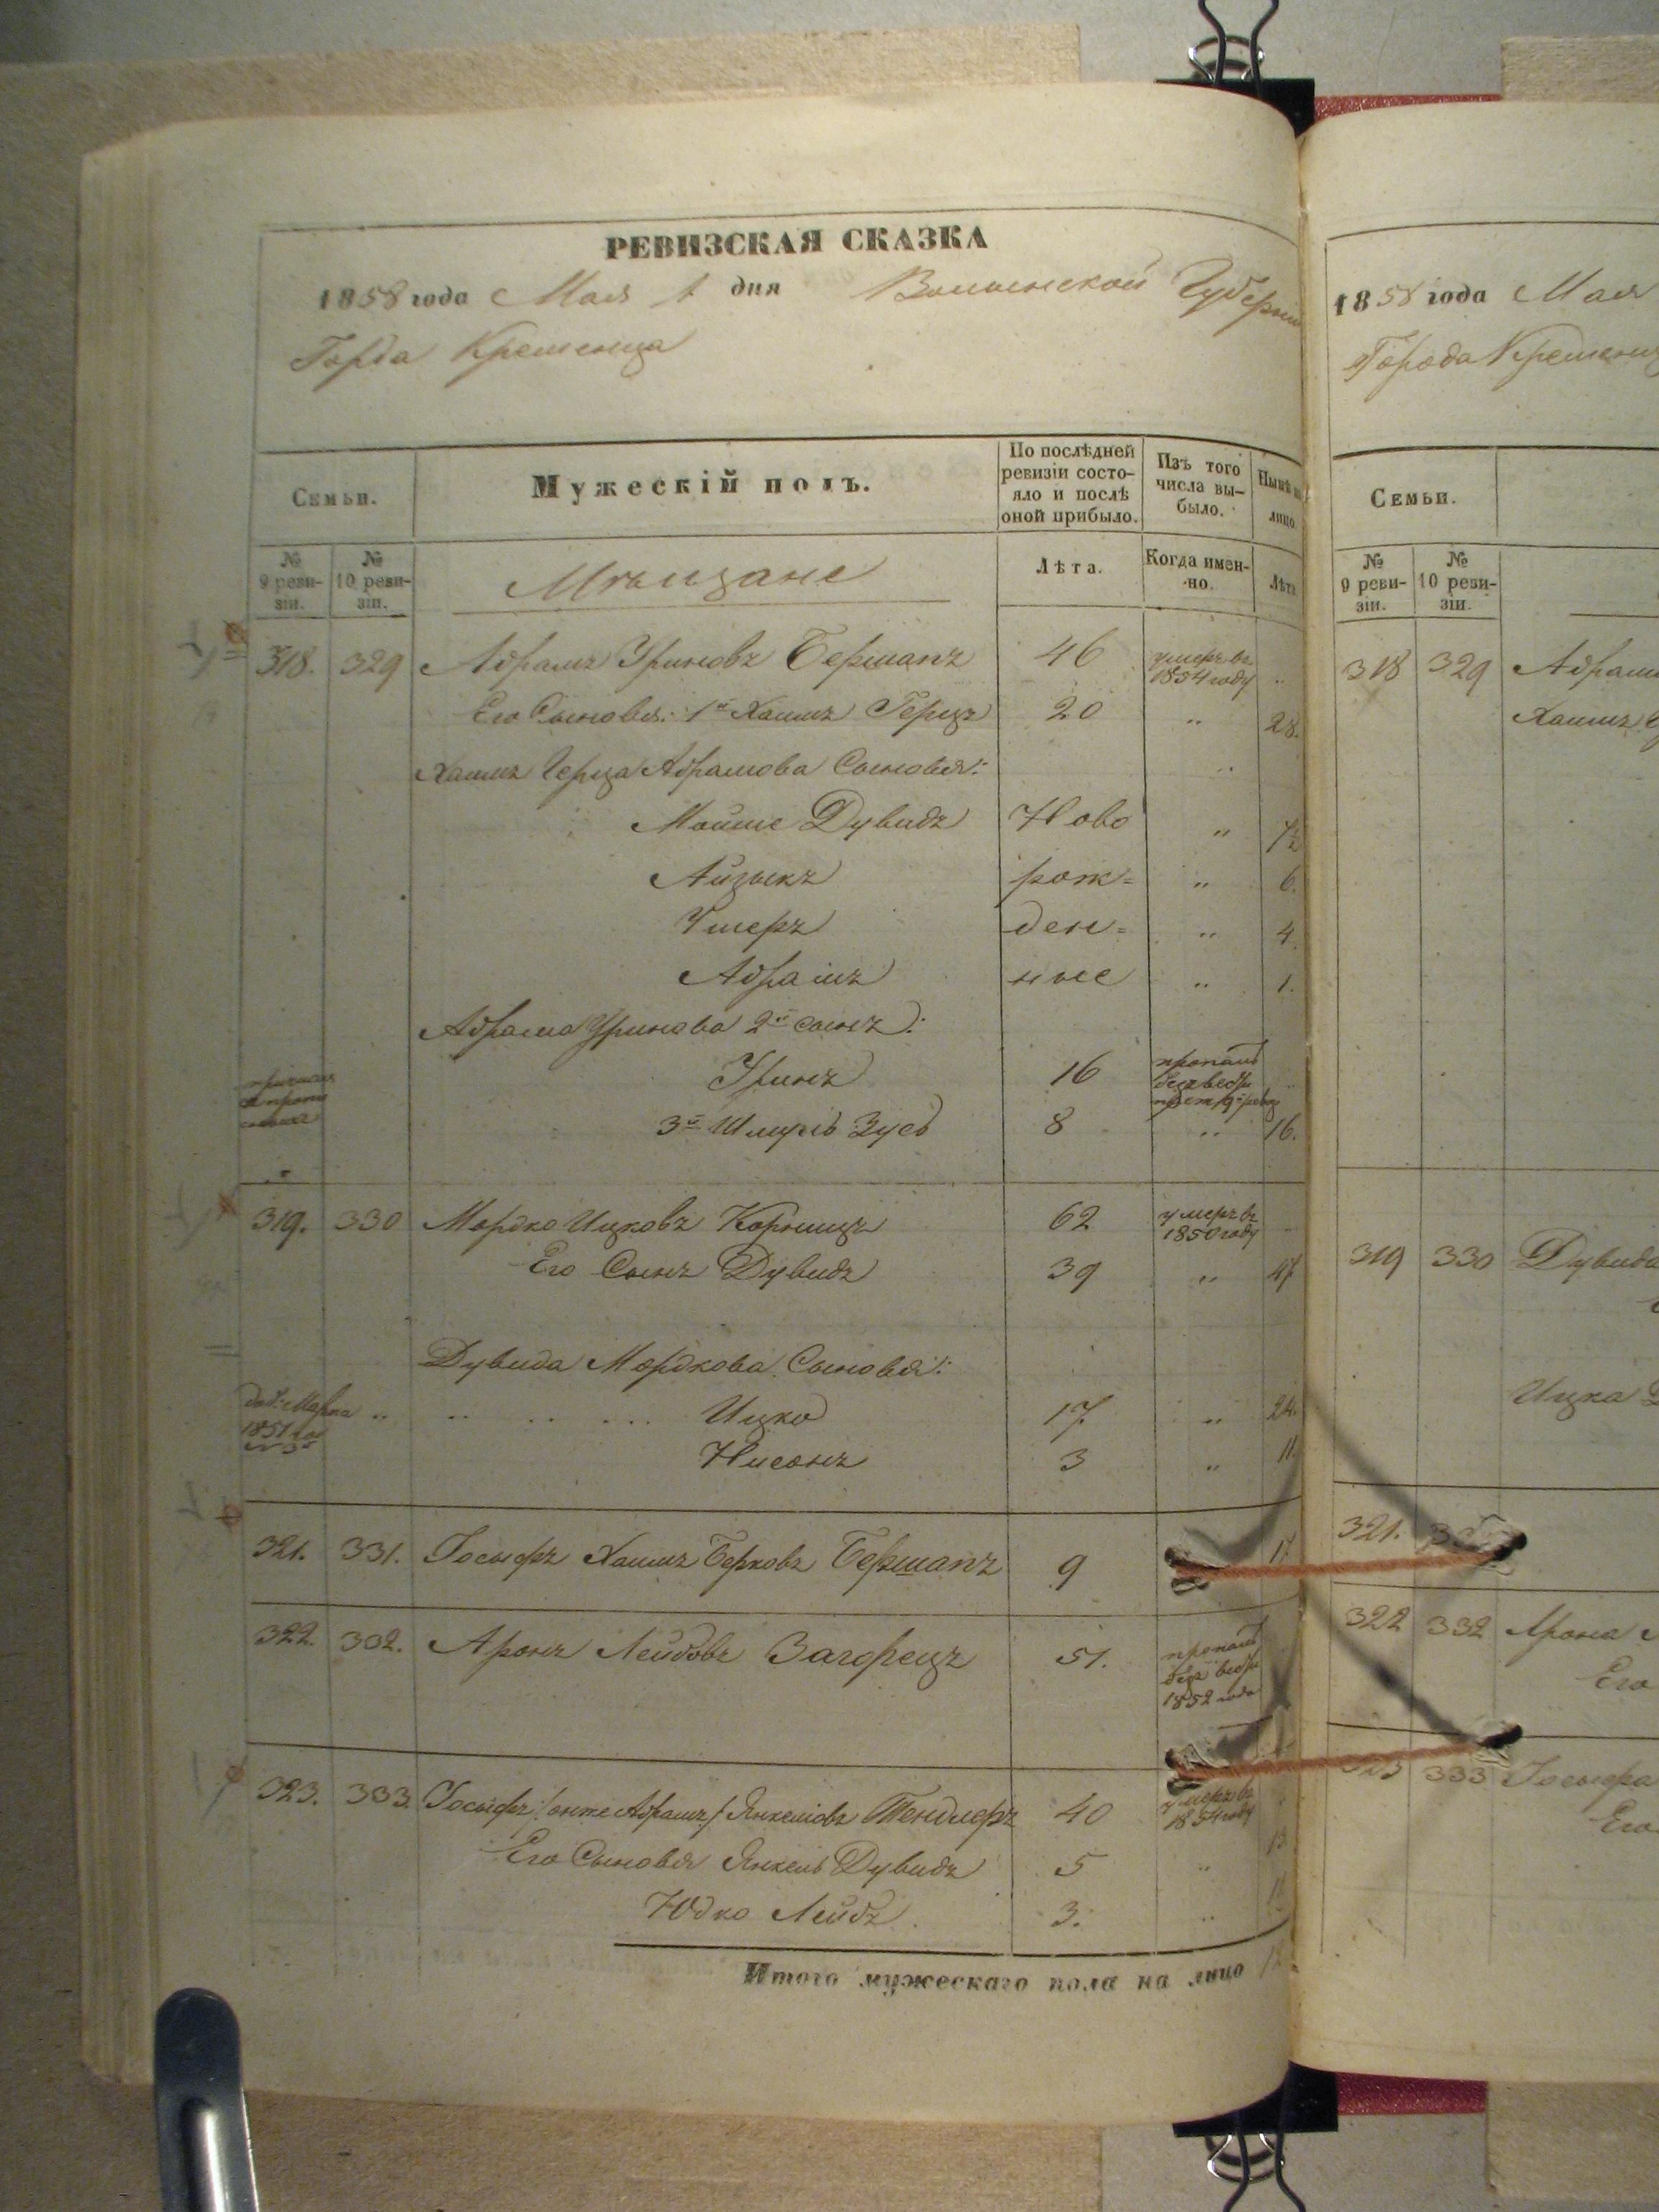 РЕВИЗСКАЯ СКАЗКА
1858 года Мая 1 дня Волынской Губерни
Города Кременца
Семьи.
Мужескій полъ.
По послѣдней ревизіи состо-
яло и послѣ оной прибыло.
Изъ того числа вы-
было.
Нынѣ на лицо.
№ 9 реви-
зіи.
№ 10 реви-
зіи.
Мѣщане
Лѣта.
Когда имен-
но.
Лѣта
318. 329 Абрамъ Уриновъ Бершапъ 46 умеръ въ 1854 году ..
Его Сыновья: 1й Хаимъ Герцъ 20 " 28.
Хаимъ Герца Абрамова Сыновья: "
Мойше Дувидъ Ново " 7½
Айзыкъ рож= " 6.
Ушеръ ден= " 4.
Абрамъ ные " 1.
Абрама Уринова 2й сынъ:
Уринъ 16 пропалъ безвѣст
3й Шмуль Зусь 8 " 16.
319. 330 Мордко Ицковъ Корницъ 62 умеръ въ 1850 году ..
Его Сынъ Дувидъ 39 " 47
Дувида Мордкова Сыновья:
1851
Ицко 17. " 24.
Нисонъ 3 " 11.
321. 331. Иосыфъ Хаимъ Берковъ Бершапъ 9 17.
322. 332. Аронъ Лейбовъ Загорецъ 51. пропалъ безъ 1852 года
323. 333. Иосыфъ /онже Абрамъ/ Янкелювъ Тендлеръ 40 умеръ въ 1854 году
Его Сыновья Янкель Дувидъ 5 " 13
Юдко Лейбъ 3. " 11
Итого мужескаго пола на лицо
1858 года Мая
Города Кременц
Семьи.
№ 9 реви-
зіи.
№ 10 реви-
зіи.
318 329 Абрам
Хаимъ
319 330 Дувида
Ицка
321.
322 332 Арона
Его
333 Иосыфа
Его